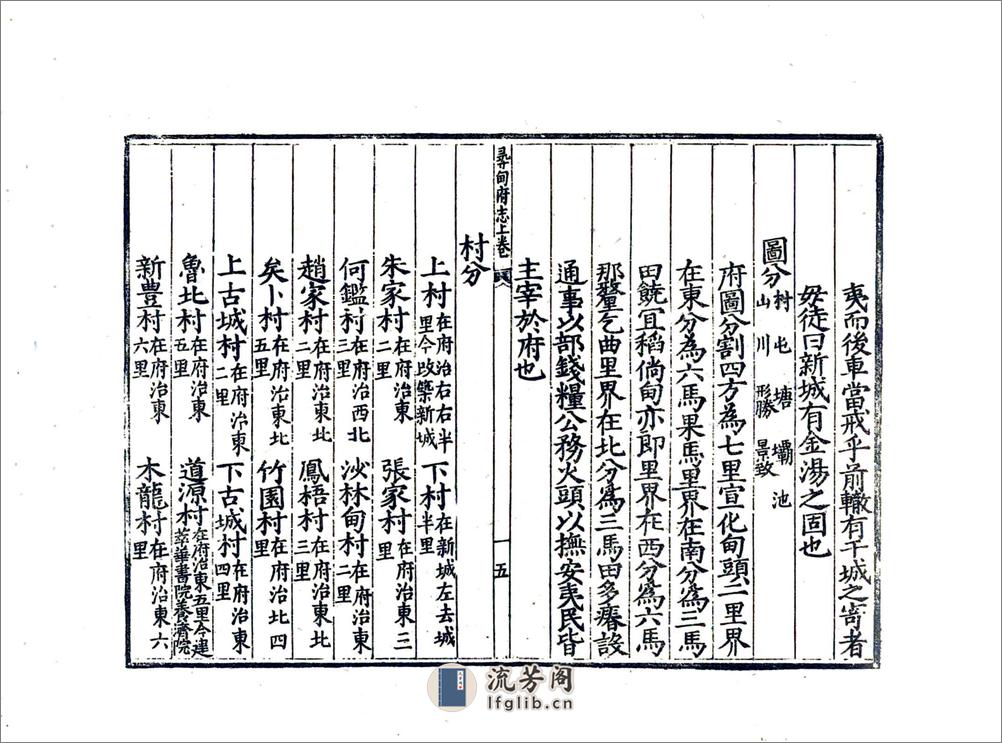 夷而後車當戒乎前轍有干城之寄者
毋徒曰新城有金湯之固也
圖分村屯塘壩池山川形勝景致
府圖分割四方為七里宣化甸頭二里界
在東分為六馬果馬里界在南分為三馬
田饒宜稻倘甸亦即里界在西分為六馬
那釐乞曲里界在北分為三馬田多瘠設
通事以部錢糧公務火頭以撫安夷民皆
主宰於府也
村分
上村在府治右右半里今改築新城 下村在新城左去城半里
朱家村在府治東二里 張家村在府治東三里
何鑑村在府治西北三里 沙林甸村在府治東二里
趙家村在府治東北二里 鳳梧村在府治東北三里
矣卜村在府治東北五里 竹園村在府治北四里
上古城村在府治東二里 下古城村在府治東四里
魯北村在府治東五里 道源村在府治東五里今建萃華書院養濟院
新豊村在府治東六里 木龍村在府治東六里
尋甸府志上卷 五
流芳阁
lfglib.cn